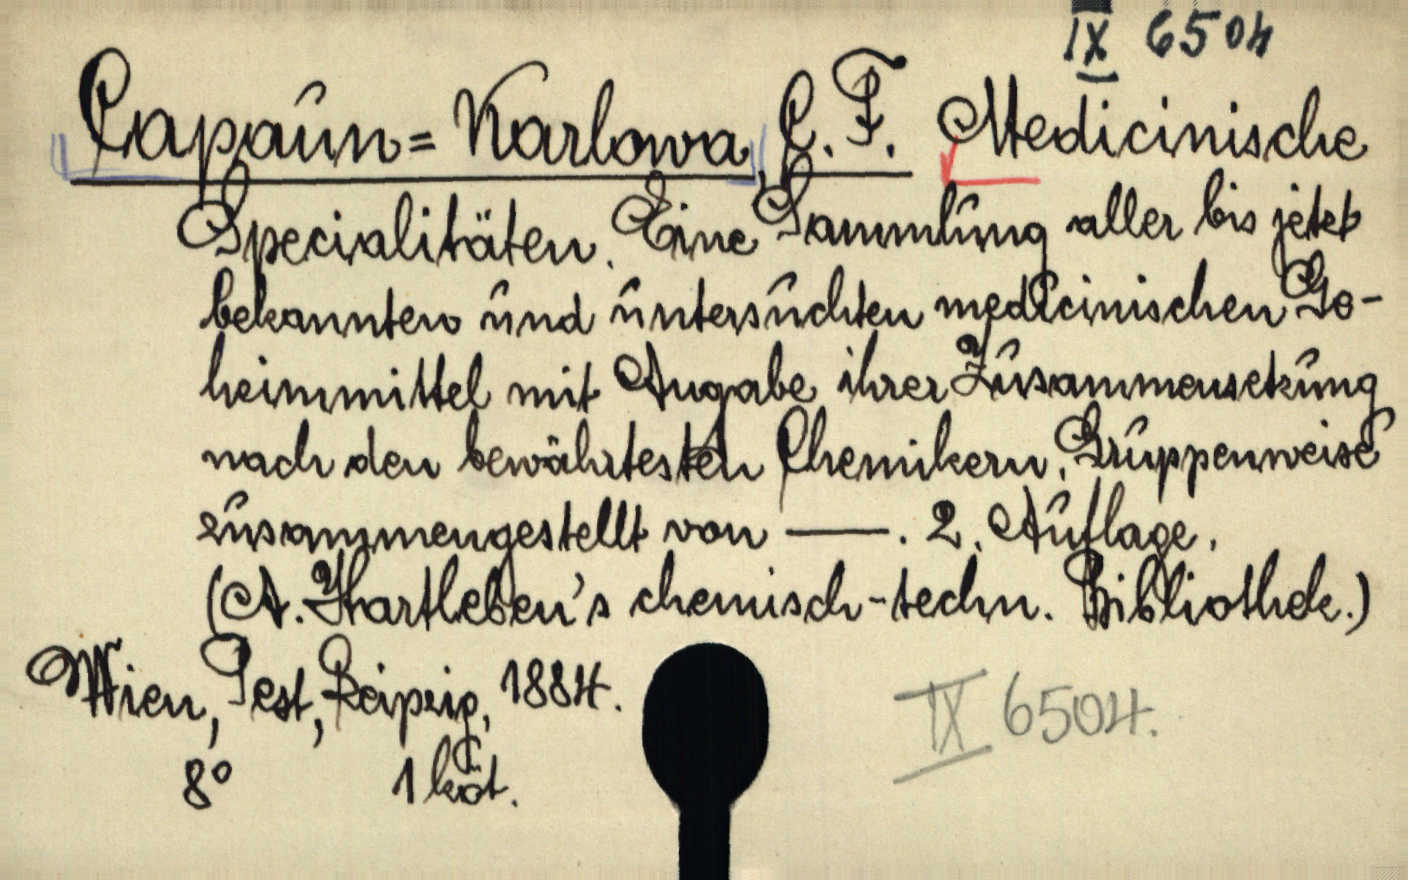 IX 6504
Capaun=Karlowa, C. F. Medicinische
Specialitäten. Eine Sammlung aller bis jetzt
bekannten und untersuchten medicinischen Ge-
heimmittel mit Angabe ihrer Zusammensetzung
nach den bewährtesten Chemikern. Gruppenweise
zusammengestellt von ——. 2. Auflage.
(A. Hartleben's chemisch-techn. Bibliothek.)
Wien, Pest, Leipzig, 1884.
IX 6504.
8° 1 köt.